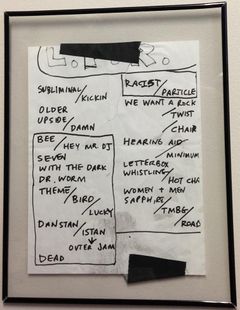 SUBLIMINAL/
KICKIN
OLDER
UPSIDE/
DAMN
BEE/HEY MR DJ
SEVEN
WITH THE DARK
DR. WORM
THEME/
BIRD/
LUCKY
DANSTAN/
ISTAN
OUTER JAM
DEAD
RACIST/
PARTICLE
WE WANT A ROCK
TWIST
/CHAIR
HEARING AID/
MINIMUM
LETTERBOX
WHISTLING/
HOT CHA
WOMEN + MEN
TMBG/
ROAD